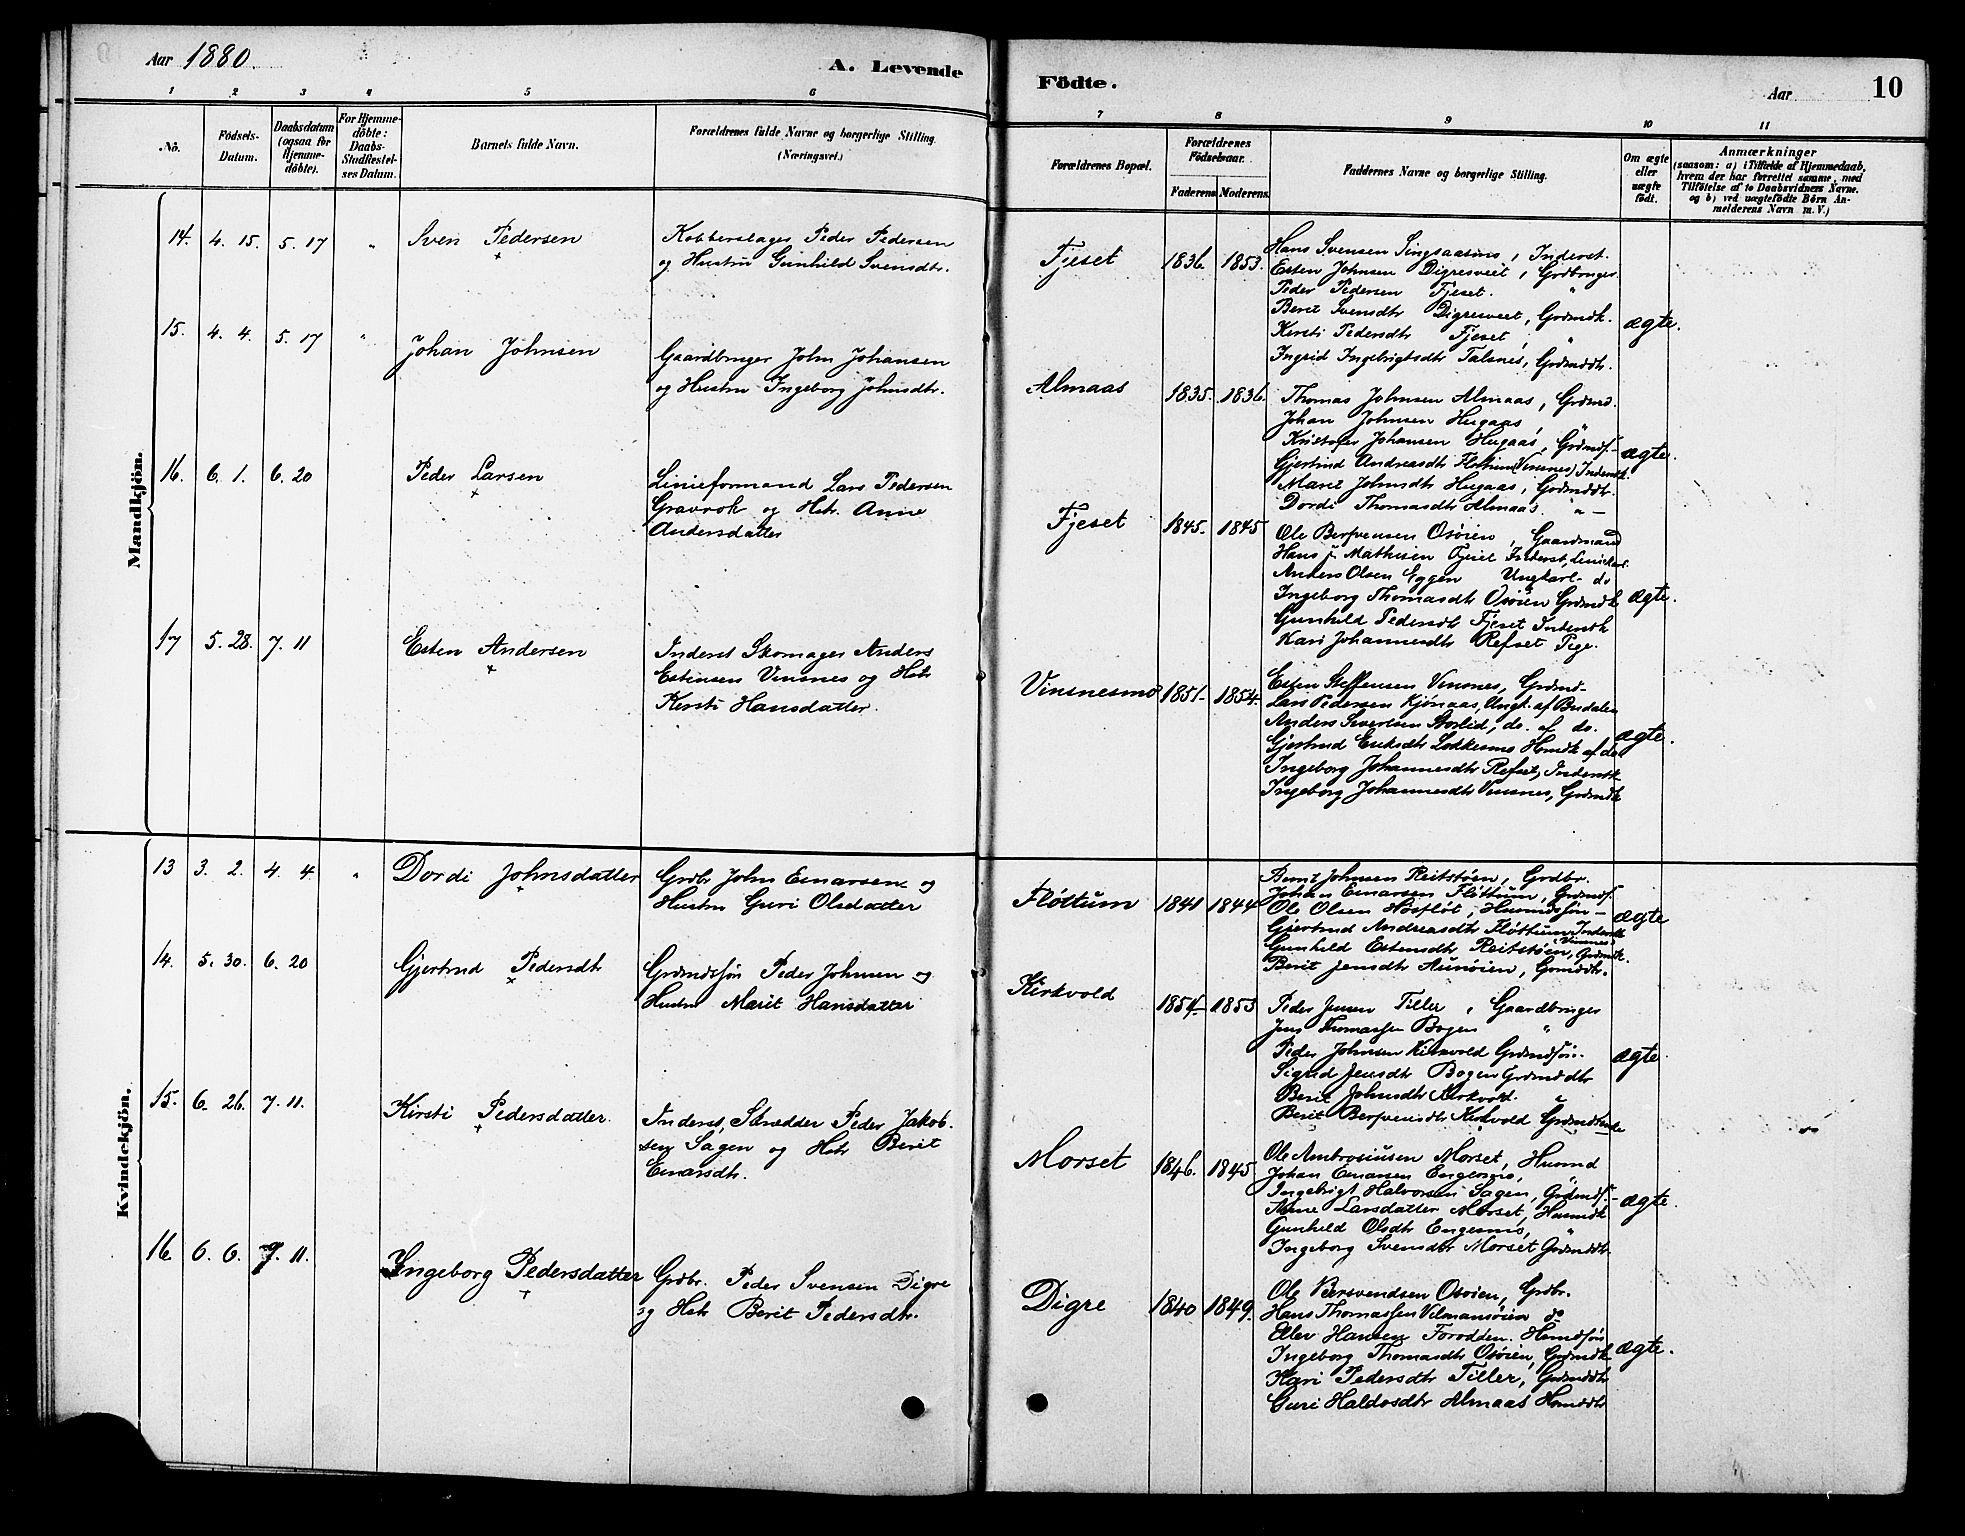 Aar 1880.
A. Levende
Födte.
Aar
10
1 2 3 4 5 6
7 8 9 10 11
No.
Födsels-
Datum.
Daabsdatum
(ogsaa for
Hjemme-
döbte).
For Hjemme-
döbte:
Daabs-
Stadfæstel-
ses Datum.
Barnets fulde Navn.
Forældrenes fulde Navne og borgerlige Stilling.
(Næringsvei.)
Forældrenes Bopæl.
Forældrenes
Födselsaar.
Faderens. Moderens.
Faddernes Navne og borgerlige Stilling.
Om ægte
eller
uægte
födt.
Anmærkninger
(saasom: a) i Tilfælde af Hjemmedaab,
hvem der har forrettet samme, med
Tilföielse af to Daabsvidners Navne.
og b) ved uægtefödte Börn An-
melderens Navn m.V.)
Mandkjön.
14. 4. 15. 5. 17 " Sven Pedersen
Kobberslager Peder Pedersen
og Hustru Gunhild Svensdtr.
Fjeset 1836 1853.
Hans Svensen Singsaasmo, Inderst.
Esten Johnsen Digresveet, Grdbruger
Peder Pedersen Fjeset. "
Berit Svensdtr Digresveet, Grdmdk.
Kirsti Pedersdtr Fjeset, "
Ingrid Ingebrigtsdtr Talsnes, Grdmddtr.
ægte.
15. 4. 4. 5. 17 " Johan Johnsen
Gaardbruger John Johansen
og Hustru Ingeborg Johnsdtr.
Almaas 1835. 1836.
Thomas Johnsen Almaas, Grdmd.
Johan Johnsen Hugaas, "
Kristofer Johansen Hugaas, Grdmdsf.
Gjertrud Andreasdtr Flottum (Vinsnes) Inderstk.
Marit Johnsdtr Hugaas, Grdmddtr.
Dordi Thomasdtr Almaas. " –
ægte.
16. 6. 1. 6. 20 Peder Larsen
Linieformand Lars Pedersen
Gravrok og Hstr. Anne
Andersdatter
Fjeset 1845. 1845
Ole Berfvensen Osøien, Gaardmand
Hans J. Mathisen Fjeset Inderst, Liniekarl.
Anders Olsen Eggen Ungkarl - do
Ingeborg Thomasdtr Osøien Grdmdk
Gunhild Pedersdtr Fjeset Inderstk
Kari Johannesdtr Refset Pige.
ægte.
17 5. 28. 7. 11 Esten Andersen
Inderst Skomager Anders
Estensen Vinsnes og Hstr
Kirsti Hansdatter.
Vinsnesmo 1851 1854.
Esten Steffensen Vinsnes, Grdmd-
Lars Pedersen Kjønaas, Ungk. af Budalen
Anders Sivertsen Storlid, do. af do.
Gjertrud Eriksdtr Løkkesmo Hmdk af do
Ingeborg Johannesdtr Refset, Inderstk
Ingeborg Johannesdtr Vinsnes, Grdmdk
ægte.
Kvindekjön.
13 3. 2. 4. 4 " Dordi Johnsdatter
Grdbr John Einarsen og
Hustru Guri Olsdatter
Fløttum 1841 1844
Bernt Johnsen Reitstøen, Grdbr.
Johan Einarsen Fløttum, Grdmdsf.
Ole Olsen Hosfløt, Husmdssøn –
Gjertrud Andreasdtr Fløttum, Inderstk
(Vinsnes)
Gunhild Estensdtr Reitstøen, Grdmdk.
Berit Jensdtr Aunøien, Grmddtr.
ægte
14. 5. 30. 6. 20 Gjertrud Pedersdtr
Grdmdsføn Peder Johnsen og
Hustru Marit Hansdatter
Kirkvold 1854 1853
Peder Jensen Tiller, Gaardbruger
Jens Thomassen Bogen "
Peder Johnsen Kirkvold Grdmdsføn.
Sigrid Jensdtr Bogen Grdmddtr
Berit Johnsdtr Kirkvold. "
Berit Berfvensdtr Kirkvold Grdmdenke
ægte.
15. 6. 26. 7. 11. Kirsti Pedersdatter.
Inderst, Skrædder Peder Jakob-
sen Sagen og Hstr Berit
Einarsdtr.
Morset 1846. 1845
Ole Ambrosiusen Morset, Husmd
Johan Einarsen Engesmo, "
Ingebrigt Halvorsen Sagen, Grdmdsf.
Anne Larsdatter Morset, Husmdk
Gunhild Olsdtr Engesmo, "
Ingeborg Svensdtr Morset Grdmddtr.
ægte.
16 6. 6. 7. 11. Ingeborg Pedersdatter
Grdbr. Peder Svensen Digre
og Hstr Berit Pedersdtr.
Digre 1840 1849.
Ole Bersvendsen Osøien, Grdbr.
Hans Thomassen Vilmansøien do
Eller Hansen Forodden. Hsmdsøn
Ingeborg Thomasdtr Osøien, Grdmdk
Kari Pedersdtr Tiller, Grdmddtr
Guri Haldosdtr Almaas Hsmddtr
ægte.